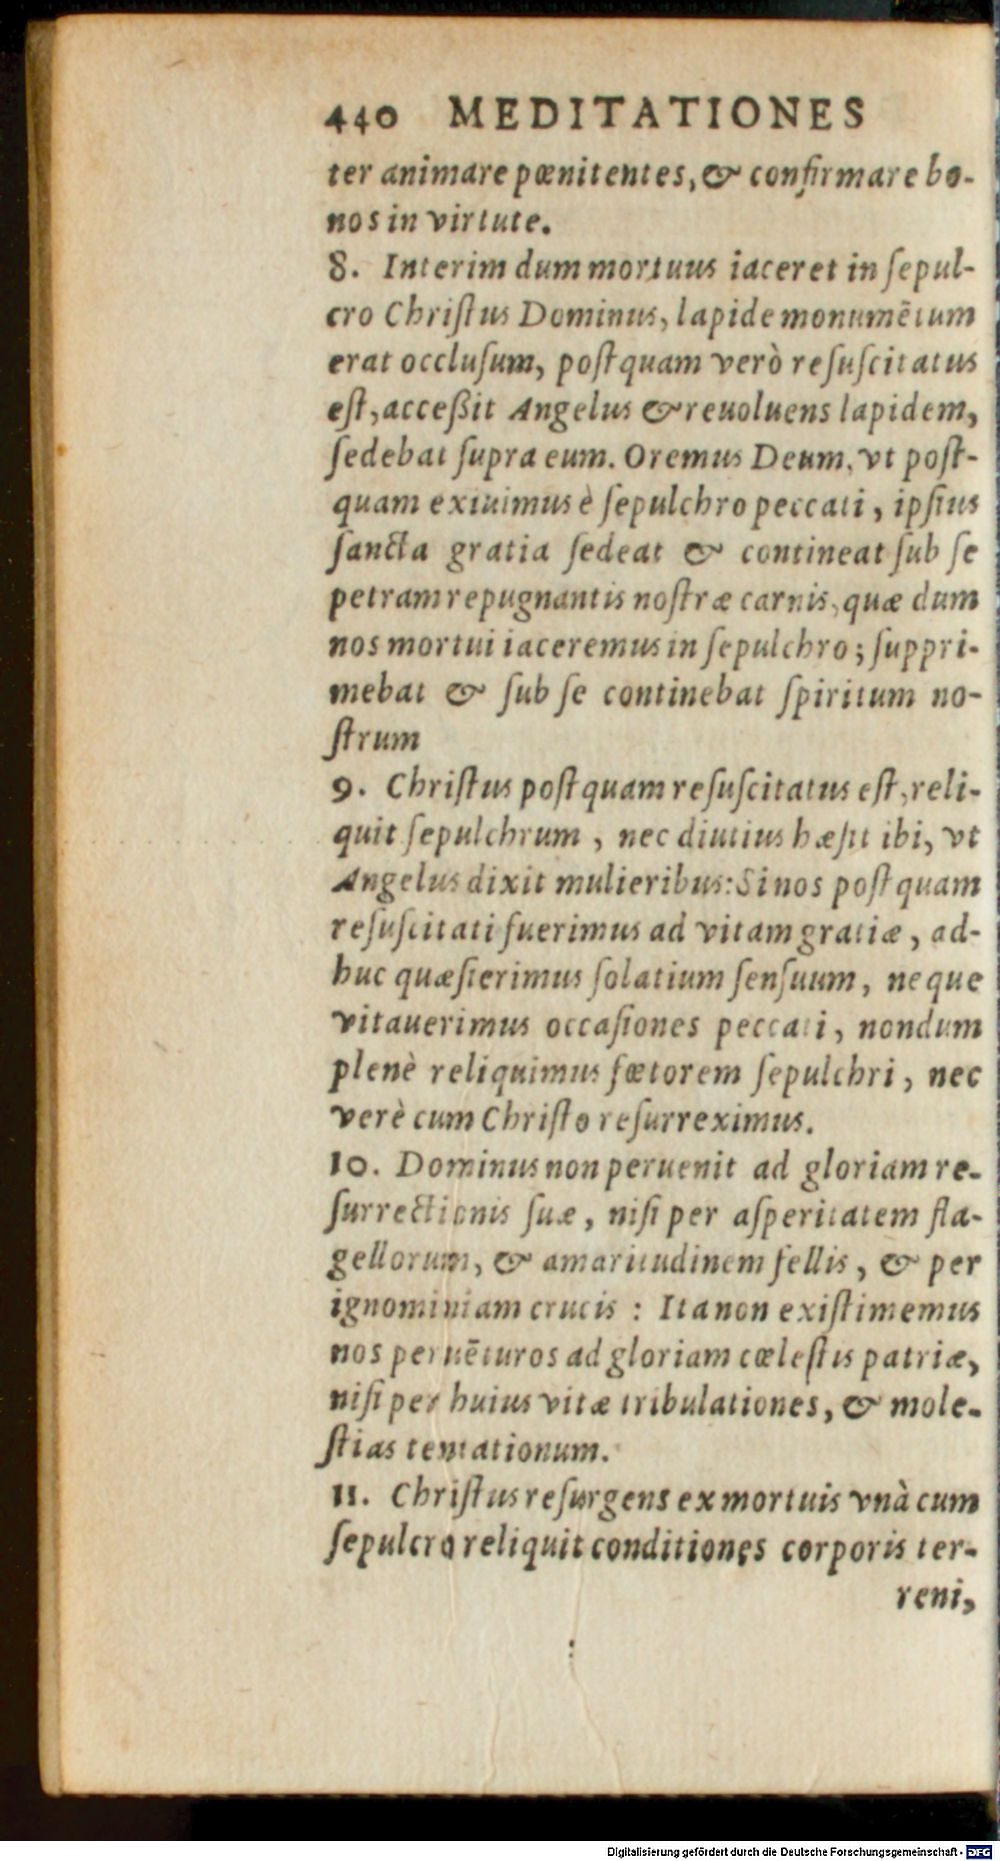 440 MEDITATIONES
ter animare pœnitentes, & confirmare bo-
nos in virtute.
8. Interim dum mortuus iaceret in ſepul-
cro Chriſtus Dominus, lapide monumētum
erat occluſum, poſtquam verò reſuſcitatus
eſt, acceßit Angelus & reuoluens lapidem,
ſedebat ſupra eum. Oremus Deum, vt poſt-
quam exiuimus è ſepulchro peccati, ipſius
ſancta gratia ſedeat & contineat ſub ſe
petram repugnantis noſtræ carnis, quæ dum
nos mortui iaceremus in ſepulchro; ſuppri-
mebat & ſub ſe continebat ſpiritum no-
ſtrum
9. Chriſtus poſtquam reſuſcitatus eſt, reli-
quit ſepulchrum, nec diutius hæſit ibi, vt
Angelus dixit mulieribus: Si nos poſtquam
reſuſcitati fuerimus ad vitam gratiæ, ad-
huc quæſierimus ſolatium ſenſuum, neque
vitauerimus occaſiones peccati, nondum
plenè reliquimus fœtorem ſepulchri, nec
verè cum Chriſto reſurreximus.
10. Dominus non peruenit ad gloriam re-
ſurrectionis ſuæ, niſi per aſperitatem fla-
gellorum, & amaritudinem fellis, & per
ignominiam crucis : Ita non exiſtimemus
nos peruēturos ad gloriam cœleſtis patriæ,
niſi per huius vitæ tribulationes, & mole-
ſtias tentationum.
11. Chriſtus reſurgens ex mortuis vnà cum
ſepulcro reliquit conditiones corporis ter-
reni,
Digitalisierung gefördert durch die Deutsche Forschungsgemeinschaft - DFG